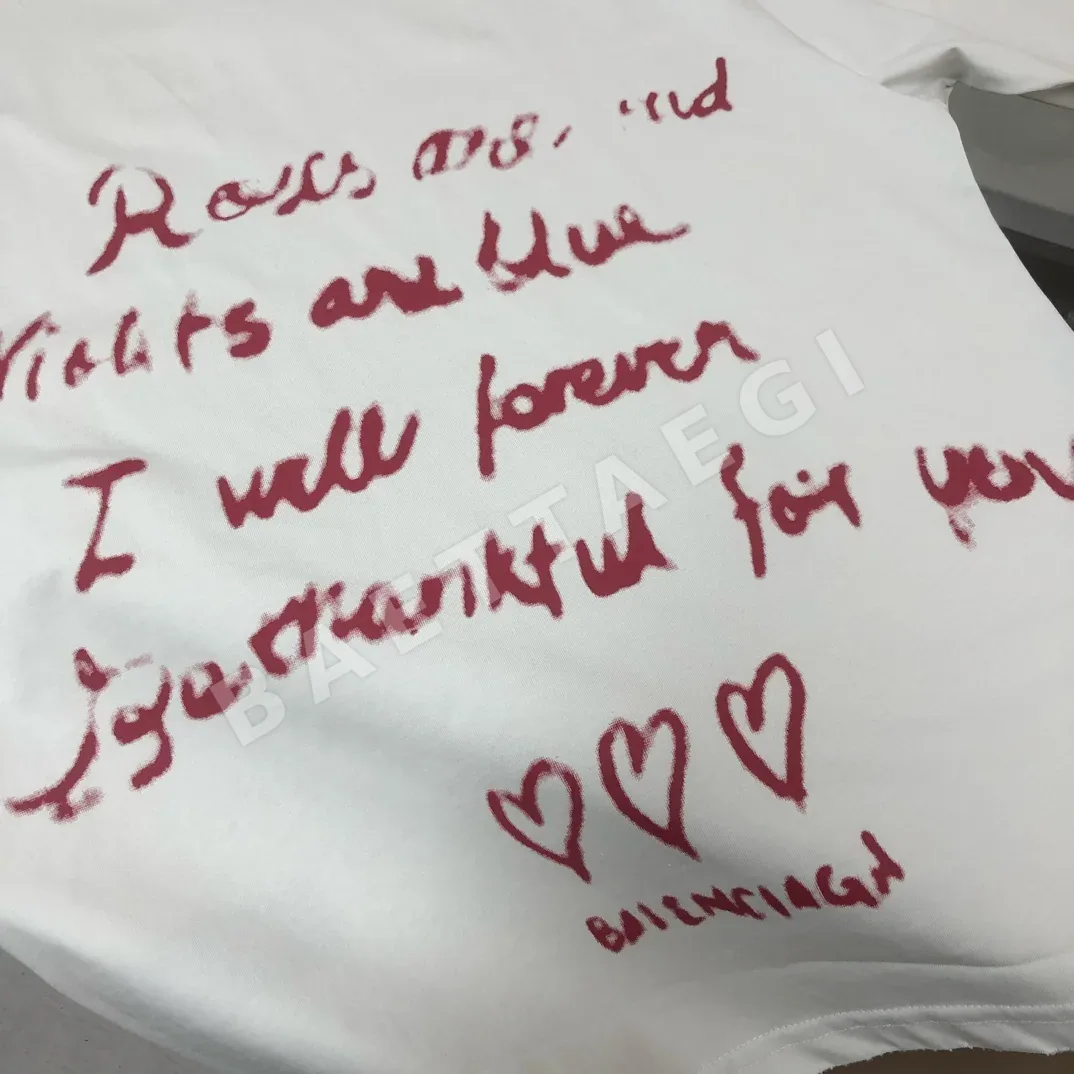 Roses are, red
Violets are blue
I will forever
be thankful for you
BALENCIAGA
BAETTAEGI